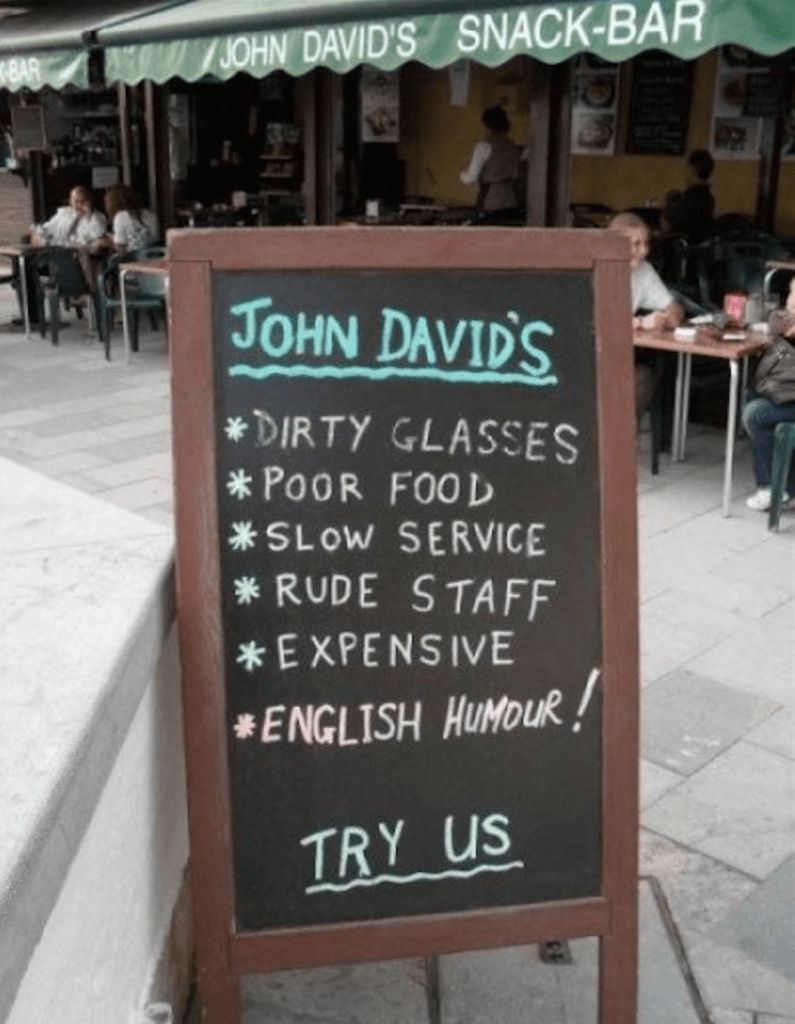 K-BAR
JOHN DAVID'S SNACK-BAR
JOHN DAVID'S
*DIRTY GLASSES
*POOR FOOD
*SLOW SERVICE
*RUDE STAFF
*EXPENSIVE
*ENGLISH HUMOUR!
TRY US